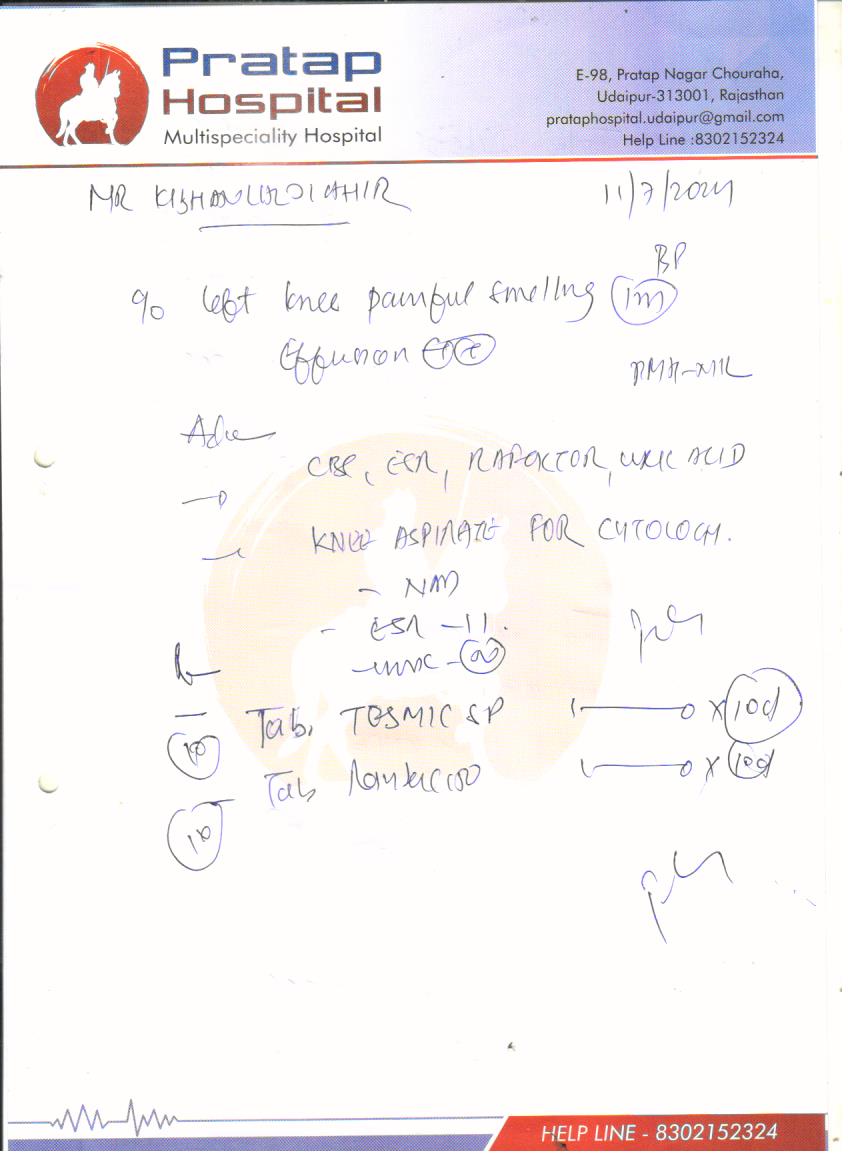 Pratap
Hospital
Multispeciality Hospital
E-98, Pratap Nagar Chouraha,
Udaipur-313001, Rajasthan
prataphospital.udaipur@gmail.com
Help Line :8302152324
MR
11/7/2024
BP
c/o left knee painful swelling 1m
Effusion
Adv
CBC, ESR, RA FACTOR, URIC ACID
KNEE ASPIRATE FOR CYTOLOGY.
- NAD
- ESR - 11.
Tab. SP 1 — 0 x 10d
10
Tab 1 — 0 x 10d
10
HELP LINE - 8302152324